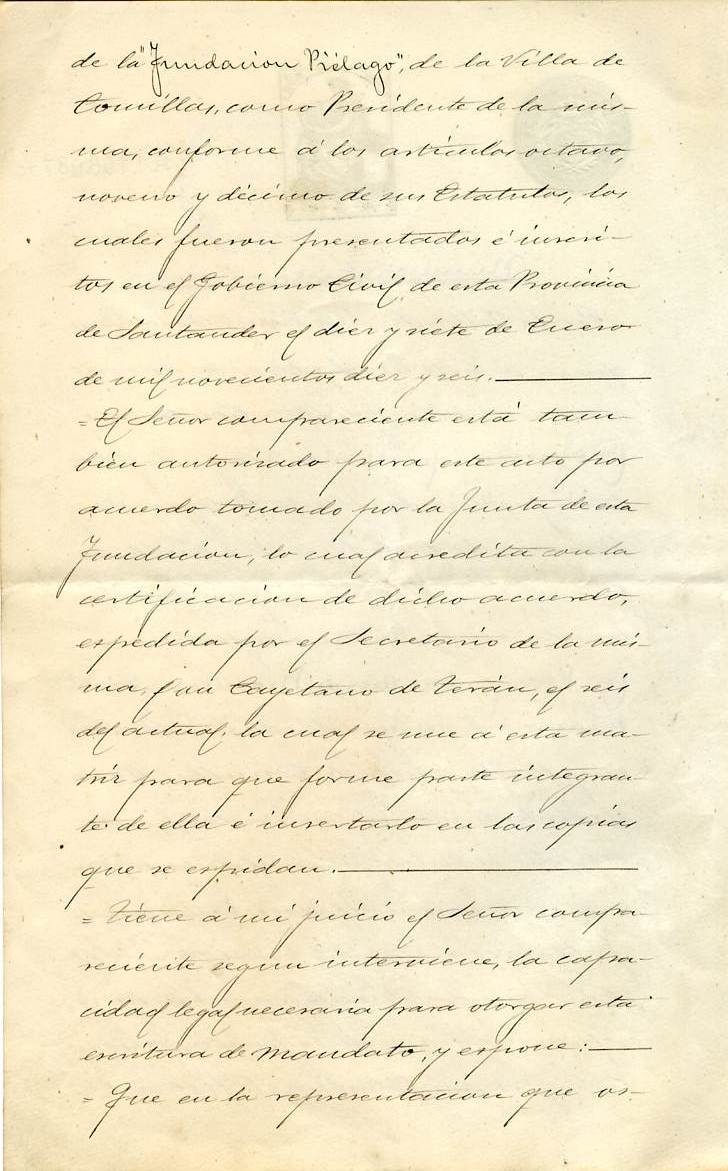 de la "Fundacion Piélago", de la Villa de
Comillas, como Presidente de la mis-
ma, conforme á los artículos octavo,
noveno y décimo de sus Estatutos, los
cuales fueron presentados é inscri-
tos en el Gobierno Civil de esta Provincia
de Santander el diez y siete de Enero
de mil novecientos diez y seis.
= El Señor compareciente está tam
bien autorizado para este acto por
acuerdo tomado por la Junta de esta
Fundacion, lo cual acredita con la
certificacion de dicho acuerdo,
espedida por el Secretario de la mis-
ma, Don Cayetano de Terán, el seis
del actual, la cual se une á esta ma-
triz para que forme parte integran-
te de ella é insertarlo en las copias
que se espidan.
= Tiene á mi juicio el Señor compa-
reciente segun interviene, la capa-
cidad legal necesaria para otorgar esta
escritura de mandato, y espone:
= Que en la representacion que os-